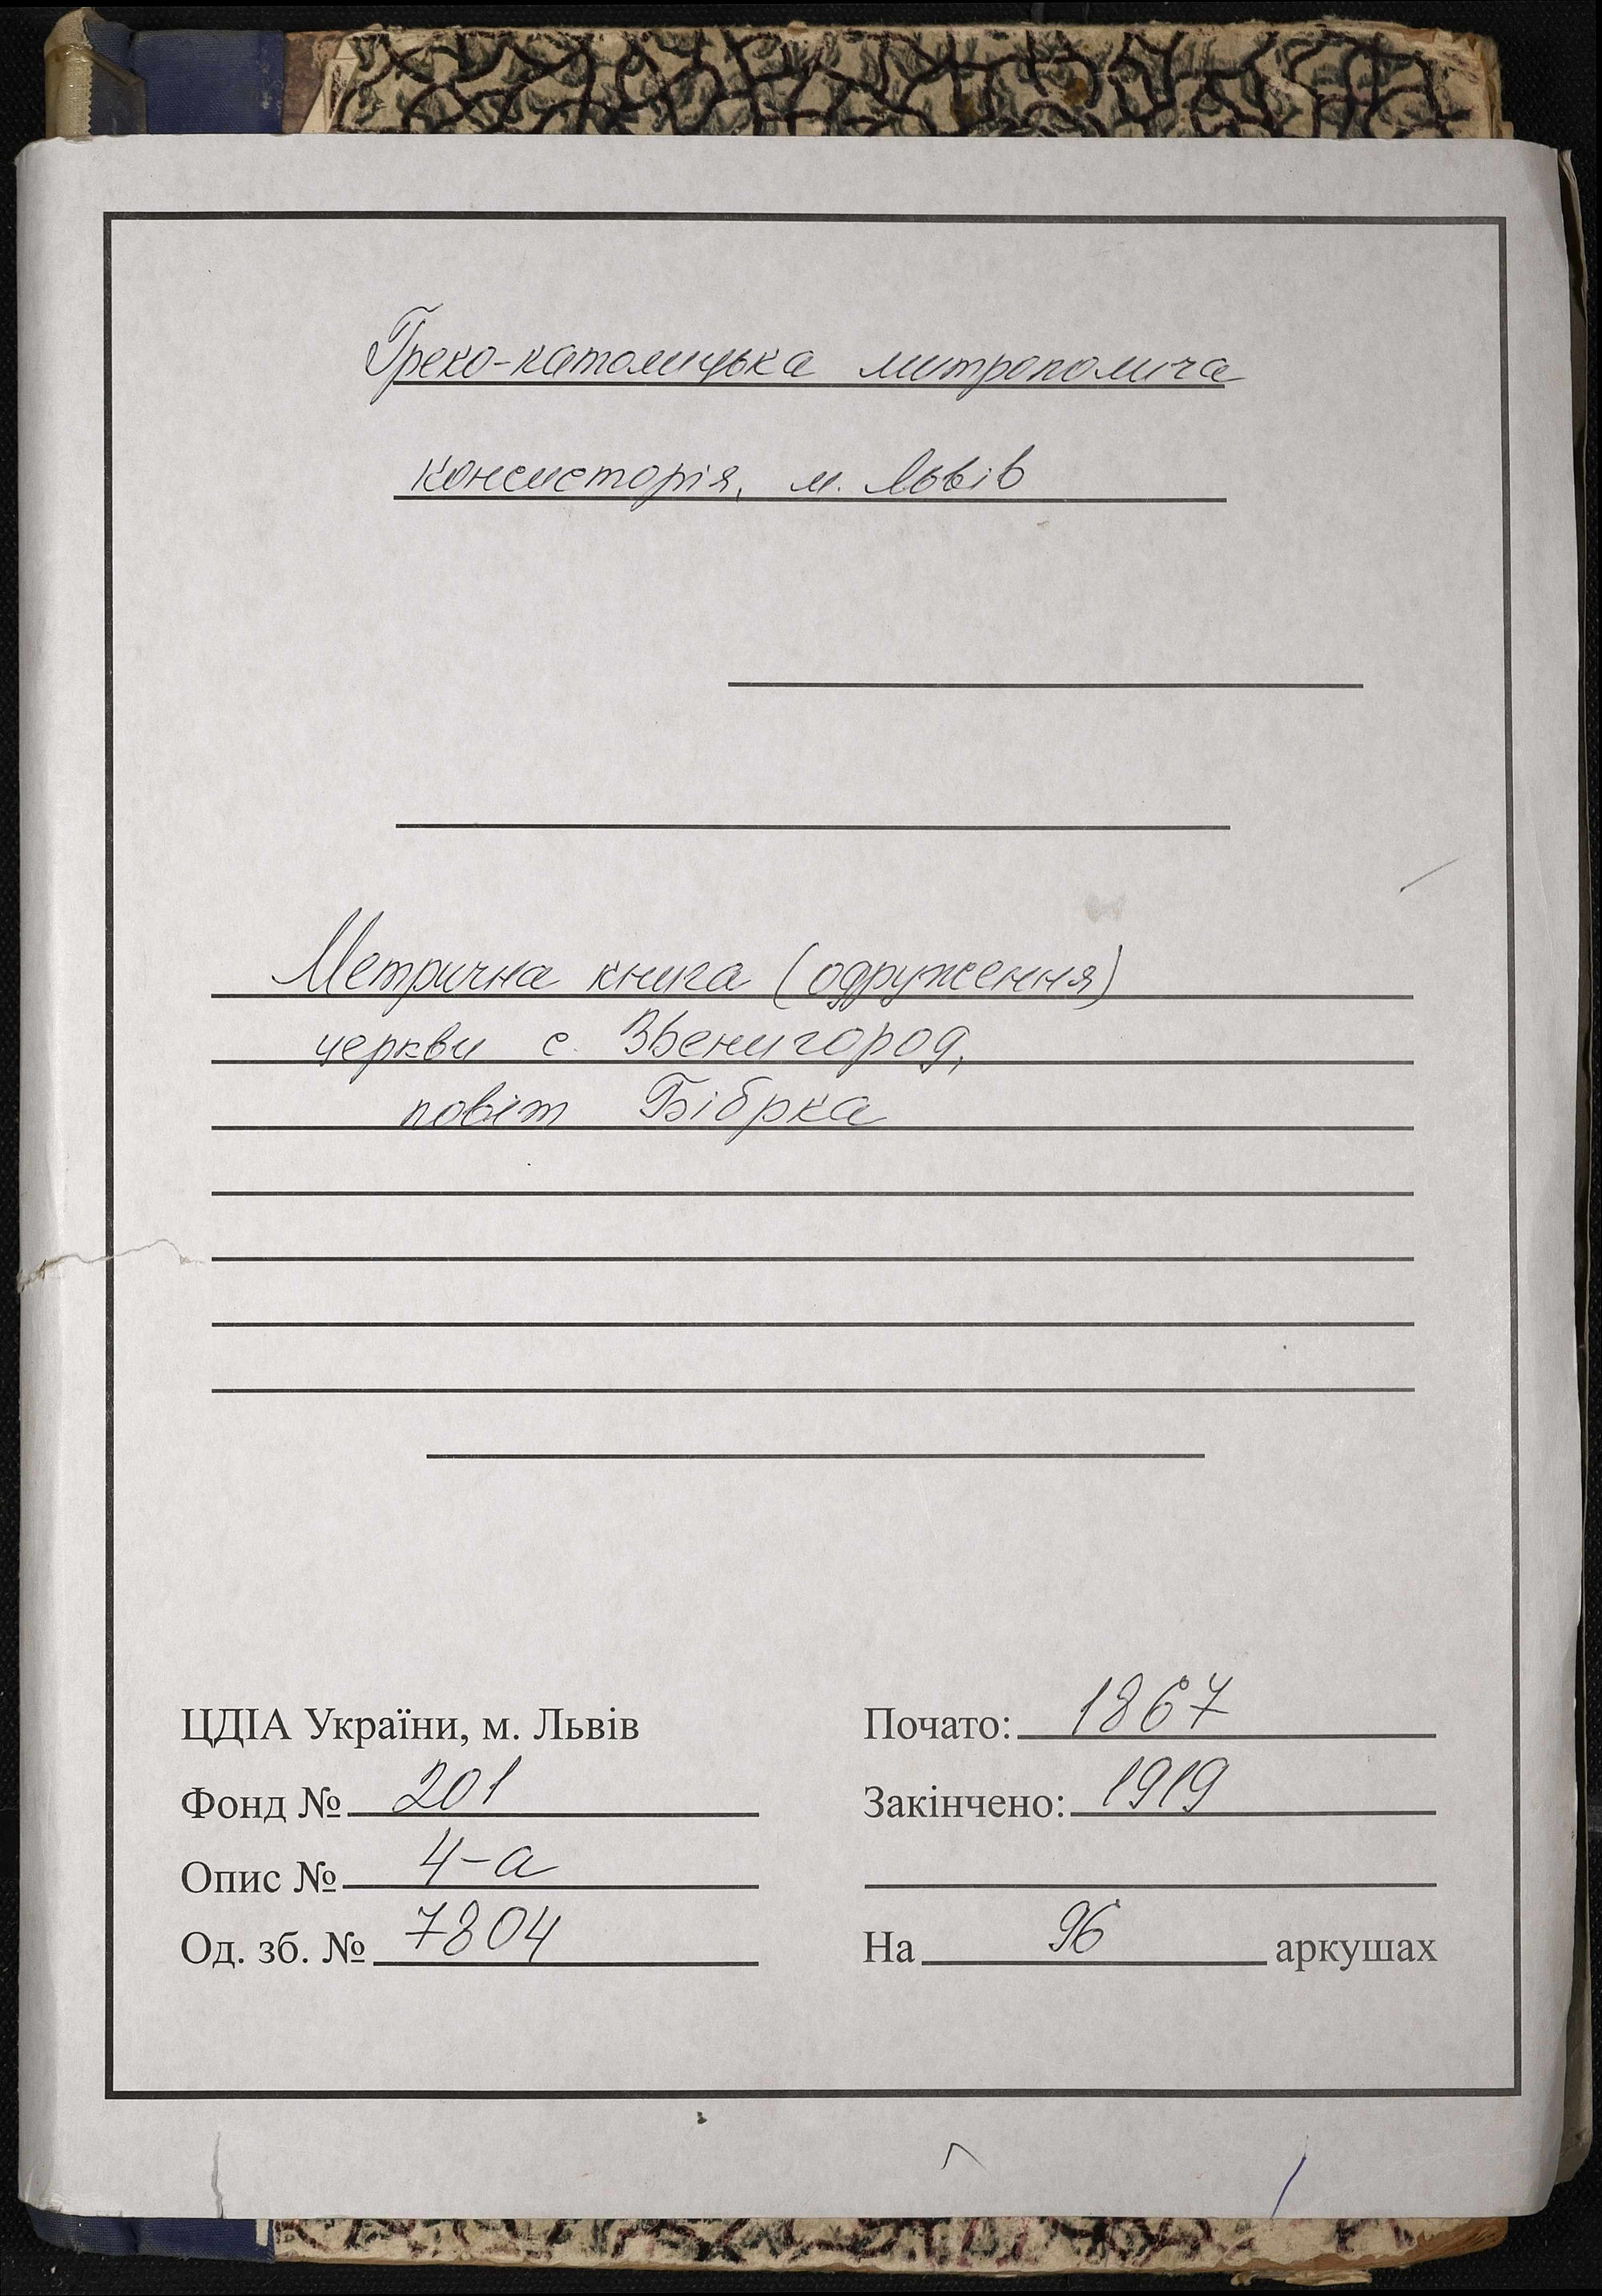 Греко-католицька митрополича
консисторія, м. Львів
Метрична книга (одруження)
церкви с. Звенигород,
повіт Бібрка
ЦДІА України, м. Львів
Фонд № 201
Опис № 4-а
Од. зб. № 7804
Почато: 1867
Закінчено: 1919
На 96 аркушах